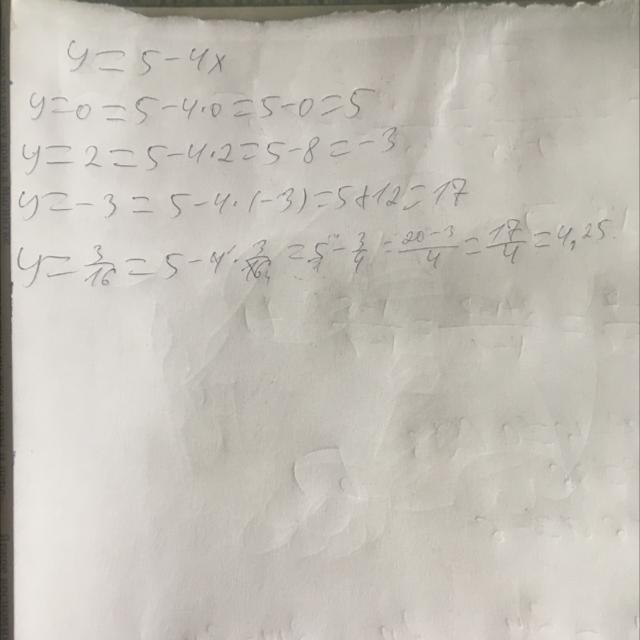 y = 5 - 4x
y = 0 = 5 - 4·0 = 5 - 0 = 5
y = 2 = 5 - 4·2 = 5 - 8 = -3
y = -3 = 5 - 4·(-3) = 5 + 12 = 17
y = 3/16 = 5 - 4·3/16 = 5/1 - 3/4 = 20-3/4 = 17/4 = 4,25